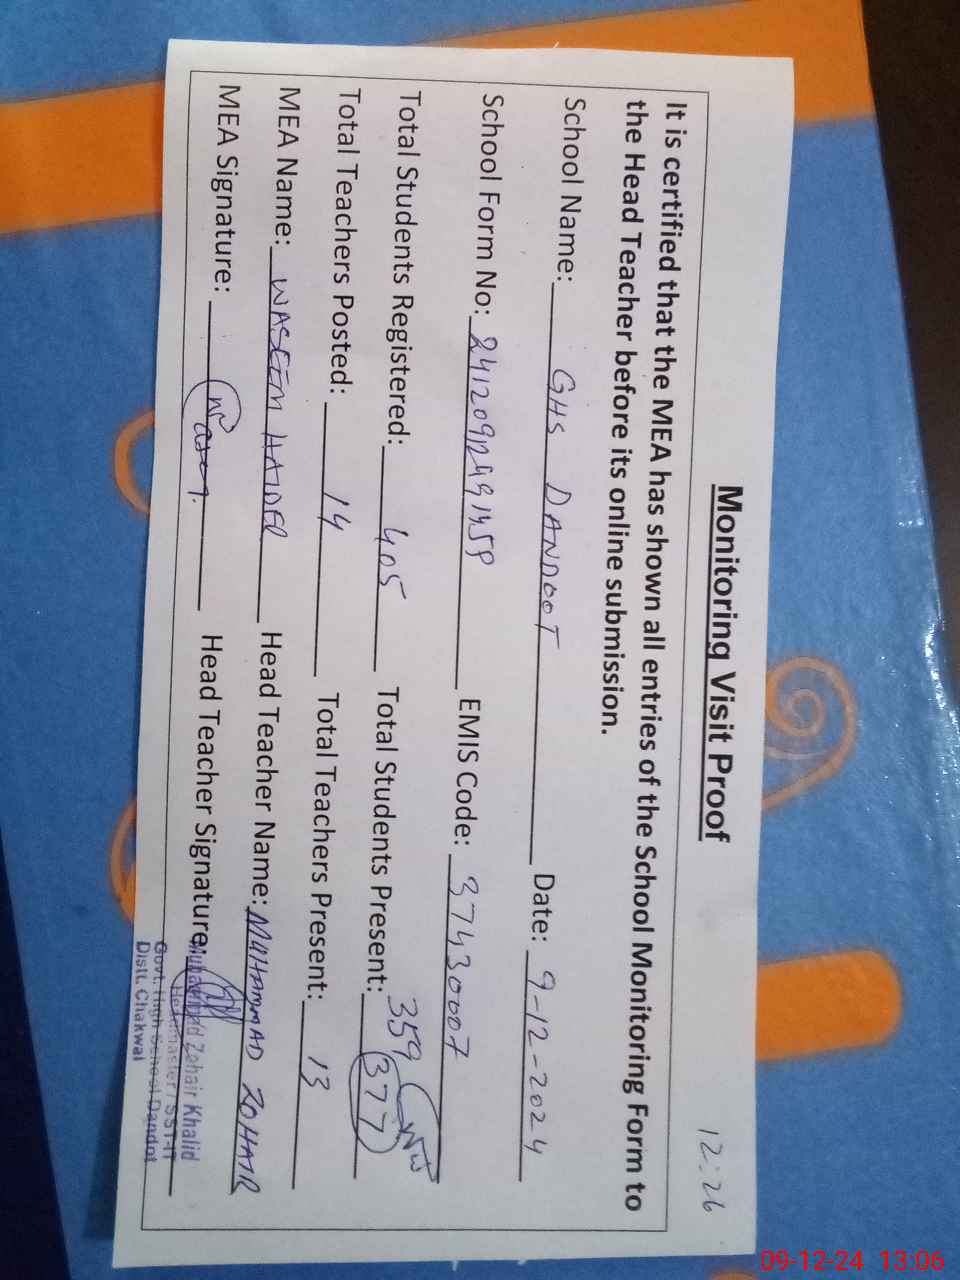 12:26
Monitoring Visit Proof
It is certified that the MEA has shown all entries of the School Monitoring Form to
the Head Teacher before its online submission.
School Name: GHS DANDOOT Date: 9-12-2024
School Form No: EMIS Code: 37430007
Total Students Registered: 405 Total Students Present: 359 377
Total Teachers Posted: 14 Total Teachers Present: 13
MEA Name: WASEEM HAIDER Head Teacher Name: MUHAMMAD ZOHAIR
MEA Signature: Head Teacher Signature:
Muhammad Zohair Khalid
Headmaster / SST-IT
Govt. High School Dandot
Distt. Chakwal
09-12-24 13:06